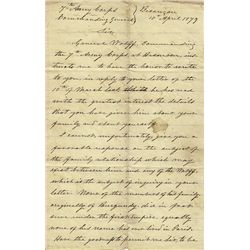 7th Army Corps Besançon
Commanding General 15th April 1879
Sir
General Wolff, Commanding
the 7th Army Corps at Besançon, in-
structs me to have the honor to write
to you in reply to your letter of the
10th of March last. He has read
with the greatest interest the details
that you have given him about your
family and about yourself.
I cannot, unfortunately, give you a
favorable response on the subject of
the family relationship which may
exist between him and any of the Wolffs
which is the subject of inquiry in your
letter. None of the members of his family
originally of Burgundy, die in
sence under the first empire, equally
none of his name has ever lived in Paris.
Have the goodness to permit me Sir, to be